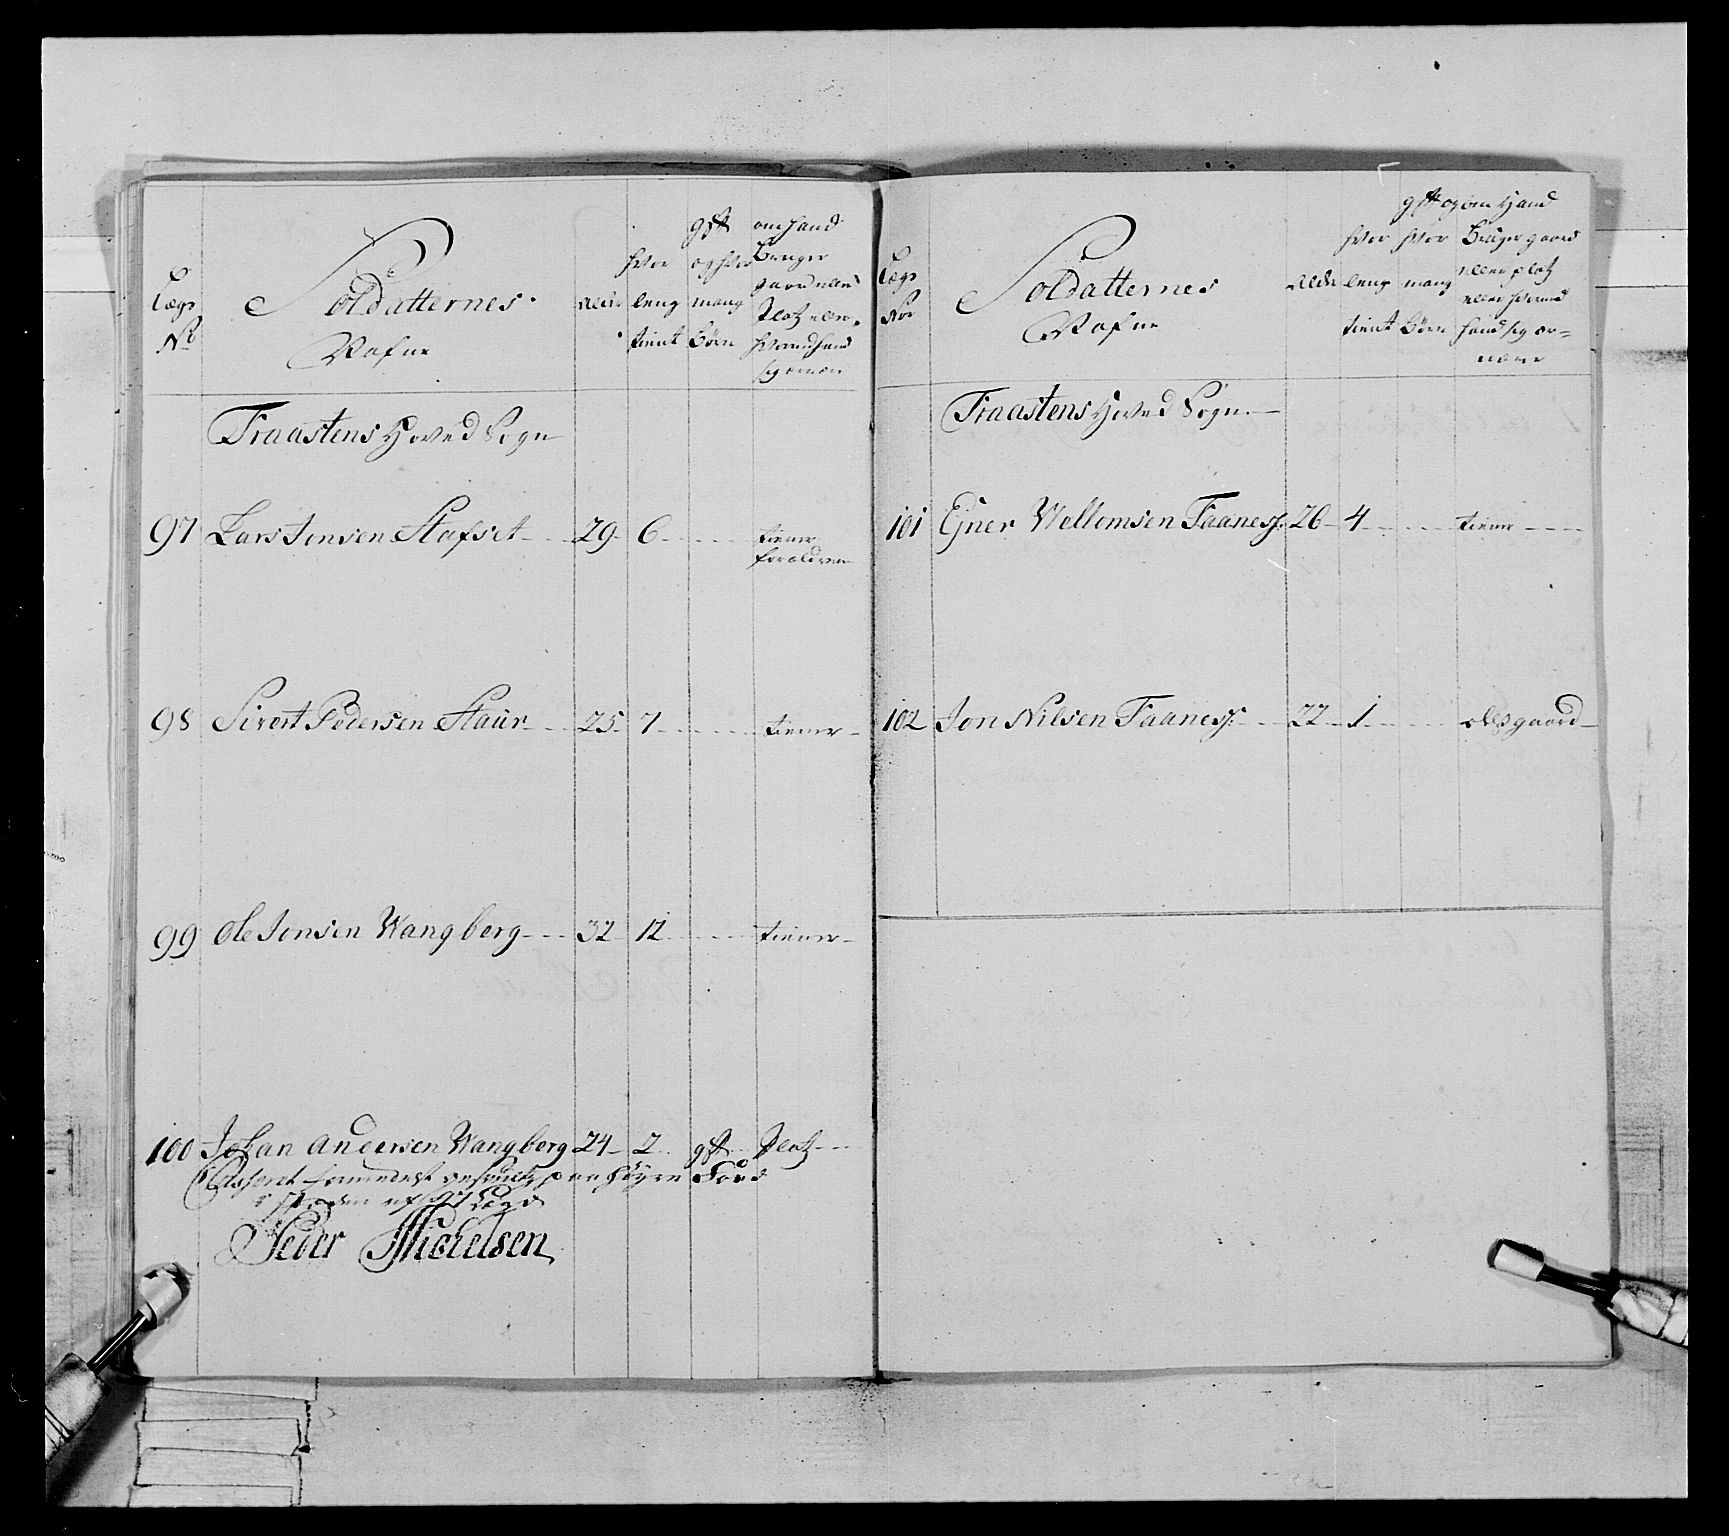 Lægs
No
Soldatternes
Nafne
Alder
hvor
leng
tient
gift
og hvor
mang
Børn
om hand
Bruger
gaard eller
Platz eller
hvormed hand
sig ernær
Fraastens Hoved Sogn
97 Lars Jonsen Stafset 29 6 tiener
foraldren
98 Sivert Pedersen Staur 25 7 tiener
99 Ole Jonsen Wangberg 32 12 tiener
100 Johan Andersen Wangberg 24 2 gift Platz
97 Lægd
Peder Michelsen
Lægs
Nor
Soldatternes
Nafne
Alder
hvor
leng
tient
gift og
hvor
mang
Børn
om Hand
Bruger gaard
eller platz
eller hvormed
hand sig er=
nære
Fraastens Hoved Sogn
101 Ejner Wellomsen Faanes 26 4 tiener
102 Jon Nilsen Faanes 22 1 gaard